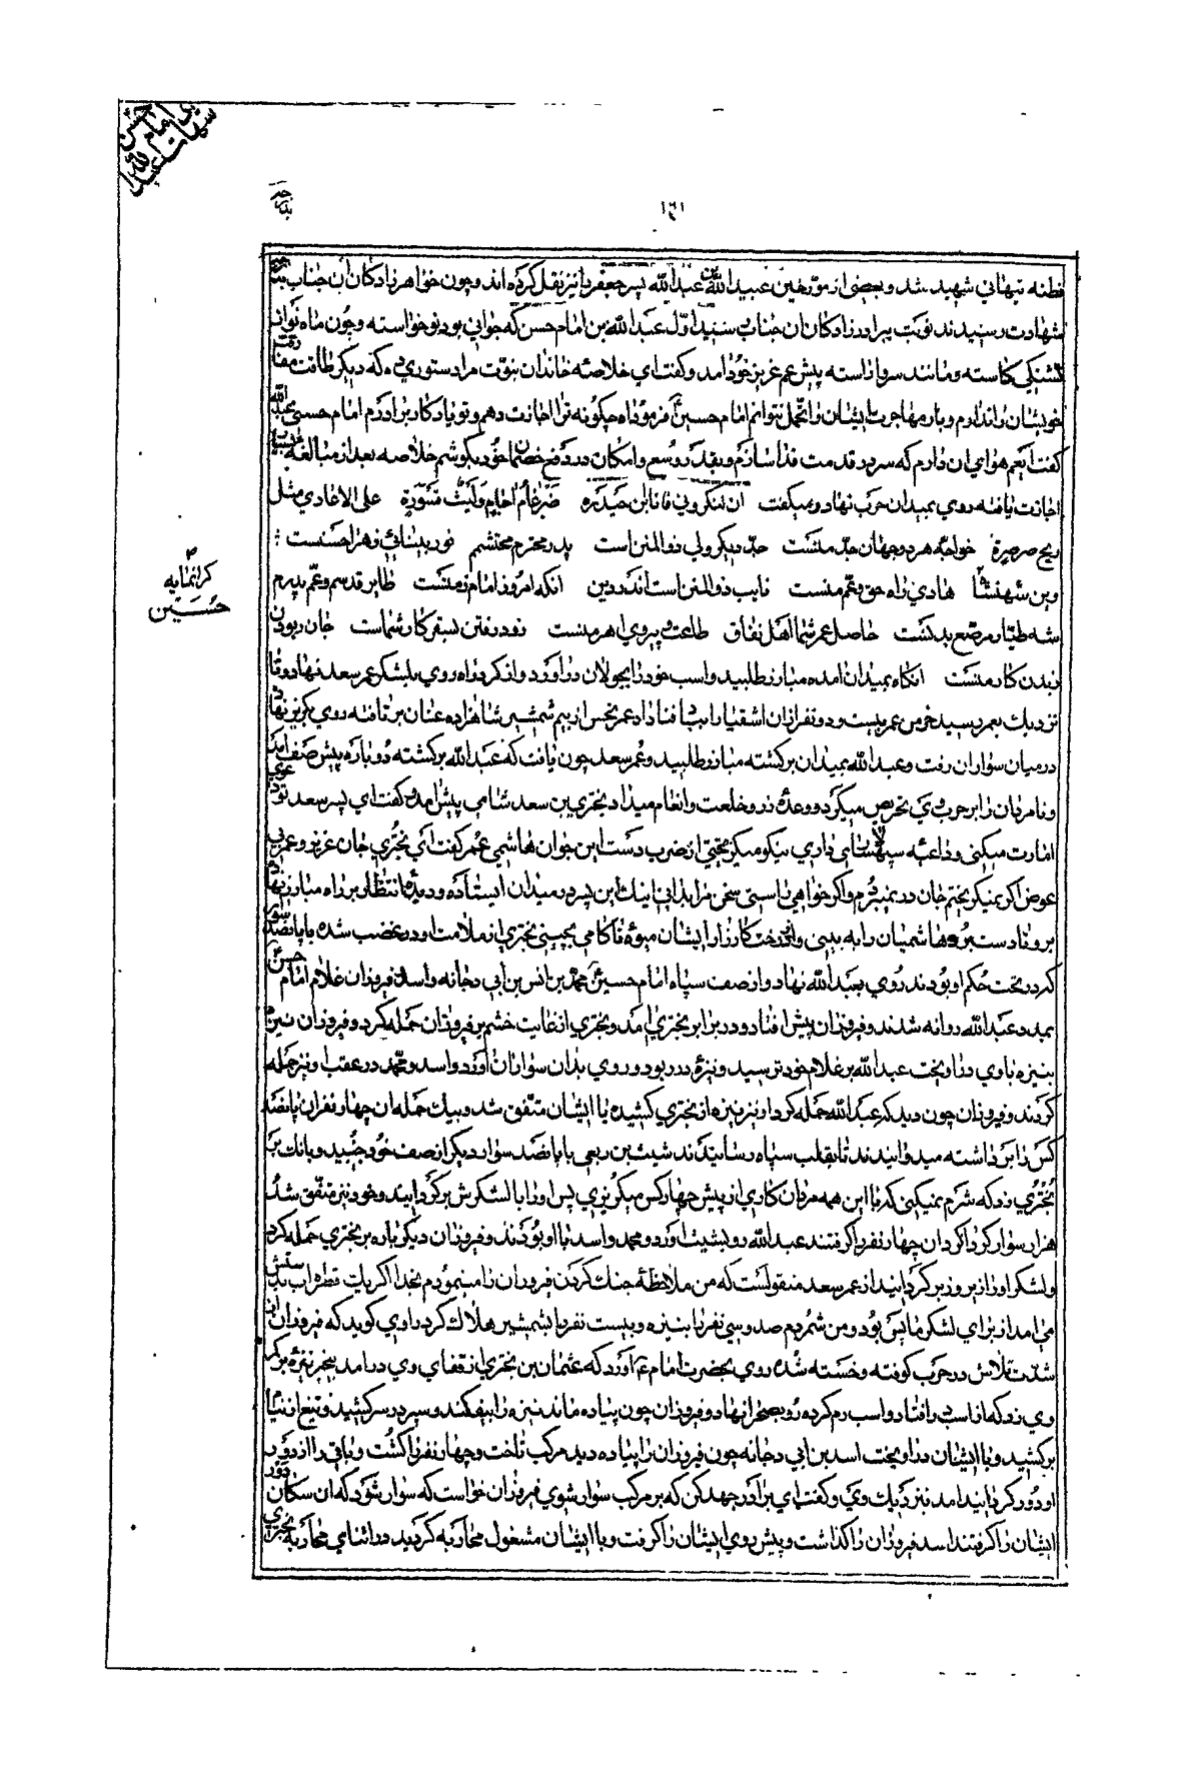 شهادت عبدالله
بن امام حسن
جلد
۱۶۱
قطنه تیهانی شهید شد و بعضی از مورخین عبیدالله بن عبدالله پسر جعفر را نیز نقل کرده اند و چون خواهرزادکان آن جناب بدرجه
شهادت رسیدند نوبت ببرادرزادکان آن جناب رسید اول عبدالله بن امام حسن که جوانی بود نوخواسته و چون ماه نو از
تشنکی کاسته و مانند سرو آراسته پیش عم عزیز خود آمد و کفت ای خلاصه خاندان نبوت مرا دستوری ده که دیکر طاقت مفارقت
خویشان را ندارم و بار مهاجرت ایشان را تحمل نتوانم امام حسین فرمود آه چکونه ترا اجازت دهم و تو یادکار برادرم امام حسنی عبدالله
کفت ای عم هوای آن دارم که سر در قدمت فدا سازم و بقدر وسع و امکان در دفع خصمان خود بکوشم خلاصه بعد از مبالغه بسیار
اجازت یافته روی بمیدان حرب نهاد و میکفت ان تنکرونی فانا ابن حیدره ضرغام اجام ولیث قسوره علی الاعادی مثل
ریح صرصره خواجه هر دو جهان جد منست جد دیکر ولی ذوالمن است پدر محترم محتشم نور بینائی زهرا حسنست
وین شهنشاه هادی راه حق و عم منست نایب ذوالمن است اندر دین آنکه امروز امام زمنست طایر قدسم و عم پدرم
شه طیار مرصع بدنست حاصل عمر شما اهل نفاق طاعت و پیروی اهرمنست زود رفتن بسقر کار شماست جان ربودن
زبدن کار منست آنکاه بمیدان آمده مبارز طلبید و اسب خود را بجولان درآورد و از کرد راه روی بلشکر عمر سعد نهاد و تا
نزدیك بعمر رسید خرمن عمر بیست و دو نفر از آن اشقیا را بباد فنا داد عمر نحس از بیم شمشیر شاهزاده عنان برتافته روی بکریز نهاد
در میان سواران رفت و عبدالله بمیدان برکشته مبارز طلبید و عمر سعد چون یافت که عبدالله برکشته دوباره پیش صف آمد
و نامردان را بر حرب وی تحریص میکرد و وعدهٔ زر و خلعت و انعام میداد بختری بن سعد شامی پیش آمده کفت ای پسر سعد تو دعوی
امارت میکنی و داعیه سپهسالاری داری نیکو میکریختی از ضرب دست این جوان هاشمی عمر کفت ای بختری جان عزیز و عمر بی
عوض اکر نمیکریختم جان در نمیبردم و اکر خواهی راستی سخن مرا بدانی اینك این پسر در میدان ایستاده و دیدهٔ انتظار بر راه مبارز نهاده
برو تا دست برد هاشمیان را به بینی و از درخت کارزار ایشان میوهٔ ناکامی بچینی بختری از ملامت او در غضب شده با پانصد سوار
که در تحت حکم او بودند روی بعبدالله نهاد و از صف سپاه امام حسین محمد بن انس بن ابی دجانه و اسد و فیروزان غلام امام حسن
بمدد عبدالله روانه شدند و فیروزان پیش افتاد و در برابر بختری آمد و بختری از غایت خشم بر فیروزان حمله کرد و فیروزان نیز
بنیزه با وی درآویخت عبدالله بر غلام خود ترسید و نیزه در ربود و روی بدان سواران آورد و اسد و محمد در عقب او نیز حمله
کردند و فیروزان چون دید که عبدالله حمله کرد او نیز نیزه از بختری کشیده با ایشان متفق شد و بیك حمله آن چهار نفر آن پانصد
کس را برداشته میدوانیدند تا بقلب سپاه رسانیدند شیث بن ربعی با پانصد سوار دیکر از صف خود جنبید و بانك بر
بختری زد که شرم نمیکنی که با این همه مردان کاری از پیش چهار کس میکریزی پس او را با لشکرش برکردانید و خود نیز متفق شد
هزار سوار کرداکرد آن چهار نفر را کرفتند عبدالله رو بشیث آورد و محمد و اسد با او بودند و فیروزان دیکر باره بر بختری حمله کرد
و لشکر او را زیر و زبر کردانید از عمر سعد منقولست که من ملاحظهٔ جنك کردن فیروزان را مینمودم بخدا اکر یك قطره آب بدستش
می آمد از برای لشکر ما بس بود و من شمردم صد و سی نفر را بنیزه و بیست نفر را بشمشیر هلاك کرد راوی کوید که فیروزان از
شدت تلاش در حرب کوفته و خسته شده روی بحضرت امام ع آورد که عثمان بن بختری از قفای وی درآمد بیخبر نیزه بر کمر
وی زد که از اسب درافتاد و اسب رم کرده رو بصحرا نهاد و فیروزان چون پیاده ماند نیزه را بیفکند و سپر در سر کشید و تیغ از نیام
برکشید و با ایشان درآویخت اسد بن ابی دجانه چون فیروزان را پیاده دید مرکب تاخت و چهار نفر را کشت و باقی را از دور
او دور کردانید آمد نزدیك وی و کفت ای برادر جهد کن که بر مرکب سوار شوی فیروزان خواست که سوار شود که آن سکان دور
ایشان را کرفتند اسد فیروزان را کذاشت و پیش روی ایشان را کرفت و با ایشان مشغول محاربه کردید در اثنای محاربه بختری
کرانمایه
حسین